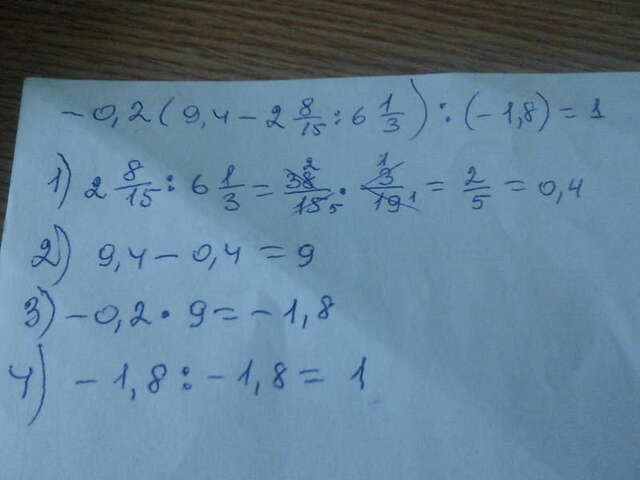 -0,2(9,4-2 8/15:6 1/3):(-1,8)=1
1) 2 8/15:6 1/3=38 2/15 5·3 1/19 1=2/5=0,4
2) 9,4-0,4=9
3) -0,2·9=-1,8
4) -1,8:-1,8=1